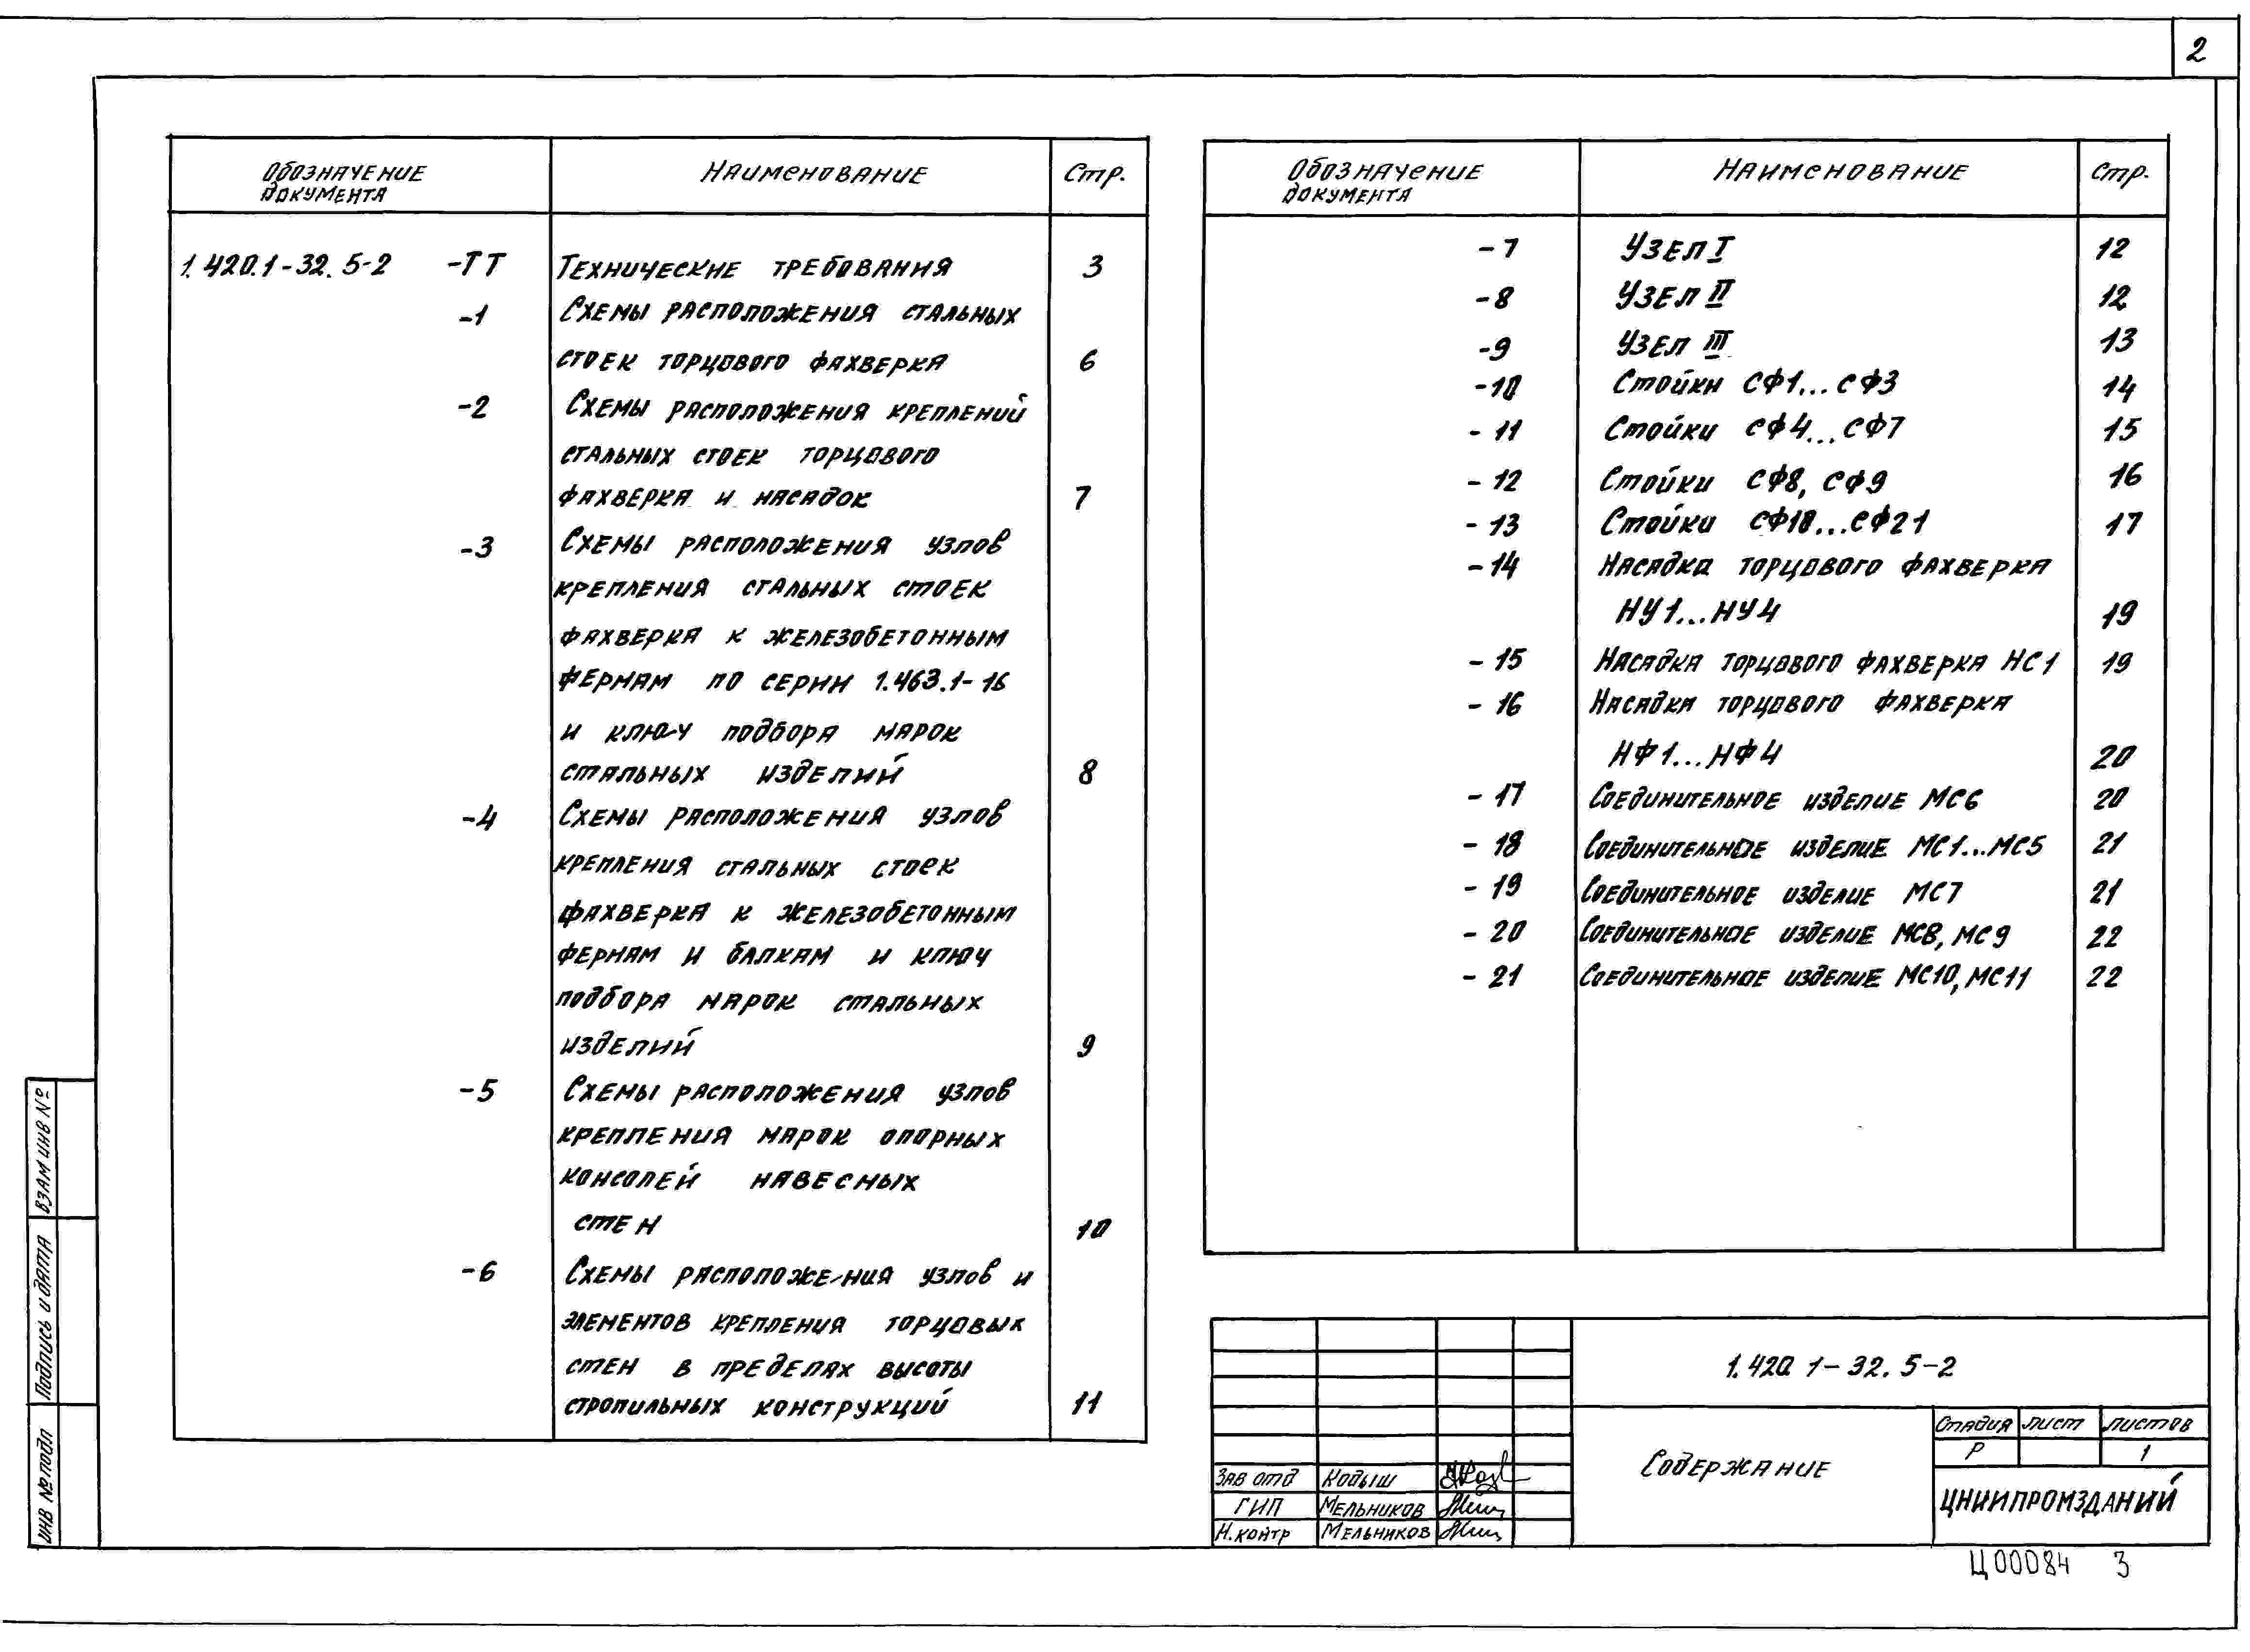 2
Обозначение документа Наименование Стр.
1.420.1-32.5-2 -ТТ Технические требования 3
-1 Схемы расположения стальных
стоек торцового фахверка 6
-2 Схемы расположения креплений
стальных стоек торцового
фахверка и насадок 7
-3 Схемы расположения узлов
крепления стальных стоек
фахверка к железобетонным
фермам по серии 1.463.1-16
и ключ подбора марок
стальных изделий 8
-4 Схемы расположения узлов
крепления стальных стоек
фахверка к железобетонным
фермам и балкам и ключ
подбора марок стальных
изделий 9
-5 Схемы расположения узлов
крепления марок опорных
консолей навесных
стен 10
-6 Схемы расположения узлов и
элементов крепления торцовых
стен в пределах высоты
стропильных конструкций 11
Обозначение документа Наименование Стр.
-7 Узел I 12
-8 Узел II 12
-9 Узел III 13
-10 Стойки СФ1...СФ3 14
-11 Стойки СФ4...СФ7 15
-12 Стойки СФ8, СФ9 16
-13 Стойки СФ10...СФ21 17
-14 Насадка торцового фахверка
НУ1...НУ4 19
-15 Насадка торцового фахверка НС1 19
-16 Насадка торцового фахверка
НФ1...НФ4 20
-17 Соединительное изделие МС6 20
-18 Соединительное изделие МС1...МС5 21
-19 Соединительное изделие МС7 21
-20 Соединительное изделие МС8, МС9 22
-21 Соединительное изделие МС10, МС11 22
Взам инв №
Подпись и дата
Инв № подл
1.420.1-32.5-2
Содержание
Стадия Лист Листов
Р 1
ЦНИИПРОМЗДАНИЙ
Зав отд Кодыш
ГИП Мельников
Н.контр Мельников
Ц00084 3